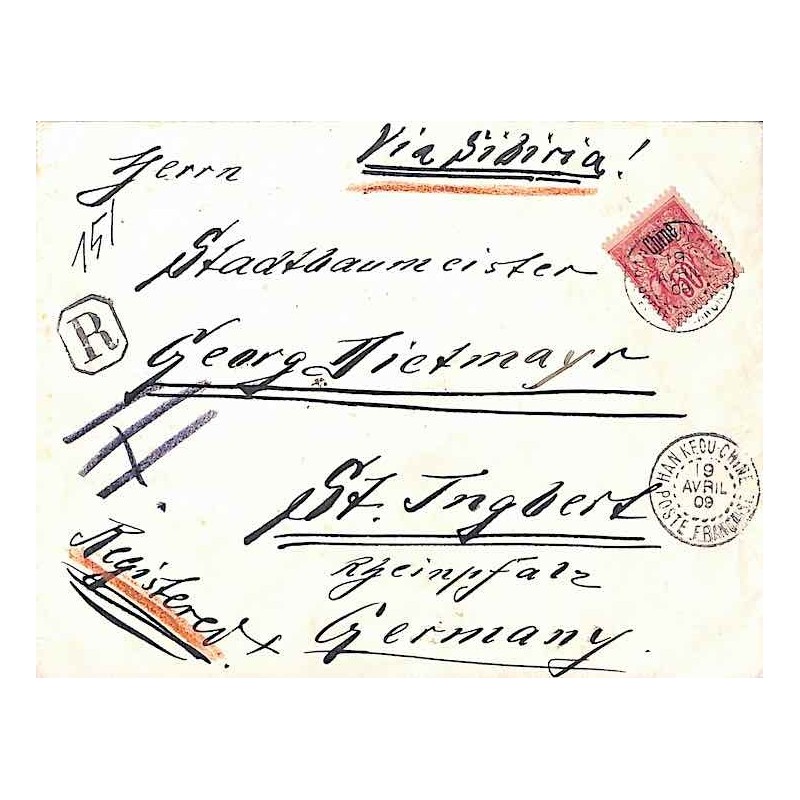 Via Sibiria!
Herrn
151.
Stadtbaumeister
Chine
R
Georg Dietmayr
HAN-KEOU-CHINE
19
AVRIL
09
POSTE FRANÇAISE
St. Ingbert
Rheinpfalz
Registered x Germany.